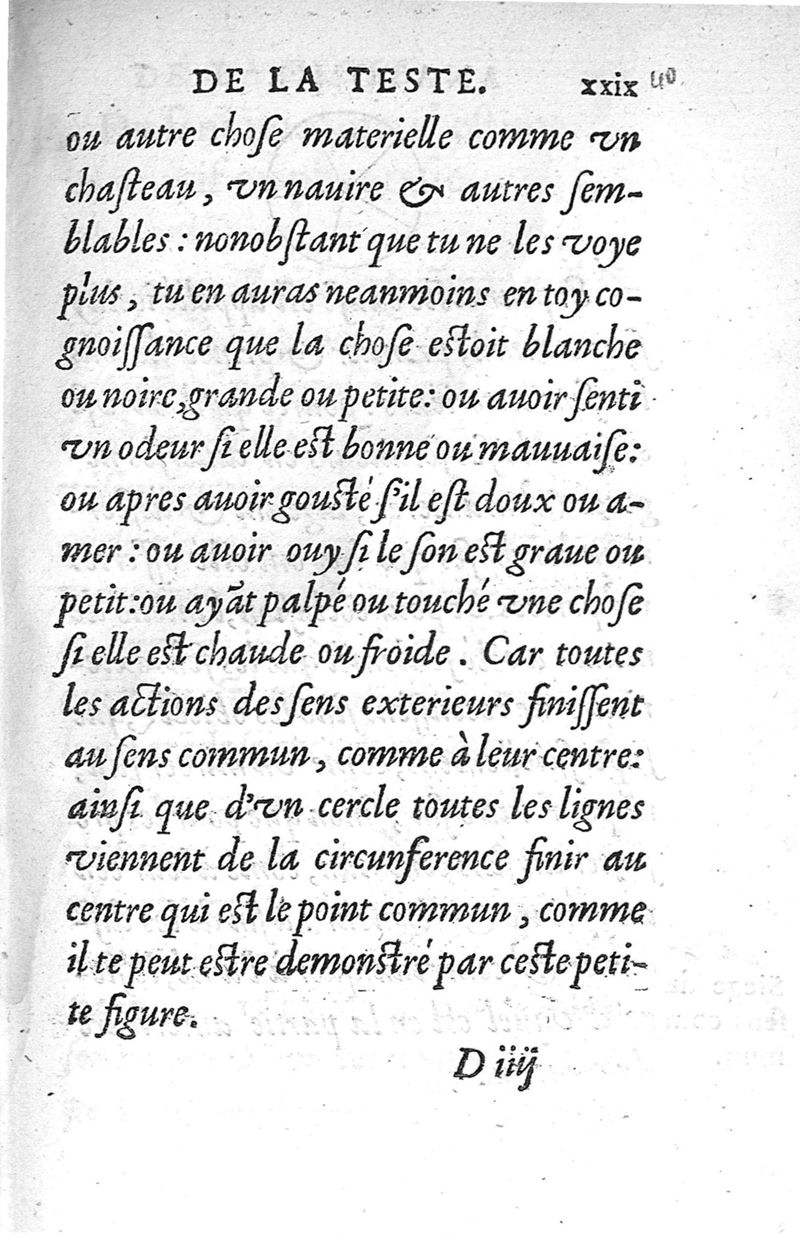 DE LA TESTE. xxix 40
ou autre choſe materielle comme vn
chaſteau, vn nauire & autres ſem-
blables : nonobſtant que tu ne les voye
plus, tu en auras neanmoins en toy co-
gnoiſſance que la choſe eſtoit blanche
ou noire,grande ou petite: ou auoir ſenti
vn odeur ſi elle eſt bonne ou mauuaiſe:
ou apres auoir gouſté ſ'il eſt doux ou a-
mer : ou auoir ouy ſi le ſon eſt graue ou
petit:ou ayãt palpé ou touché vne choſe
ſi elle eſt chaude ou froide. Car toutes
les actions des ſens exterieurs finiſſent
au ſens commun, comme à leur centre:
ainſi que d'vn cercle toutes les lignes
viennent de la circunference finir au
centre qui eſt le point commun, comme
il te peut eſtre demonſtré par ceſte peti-
te figure.
D iiij